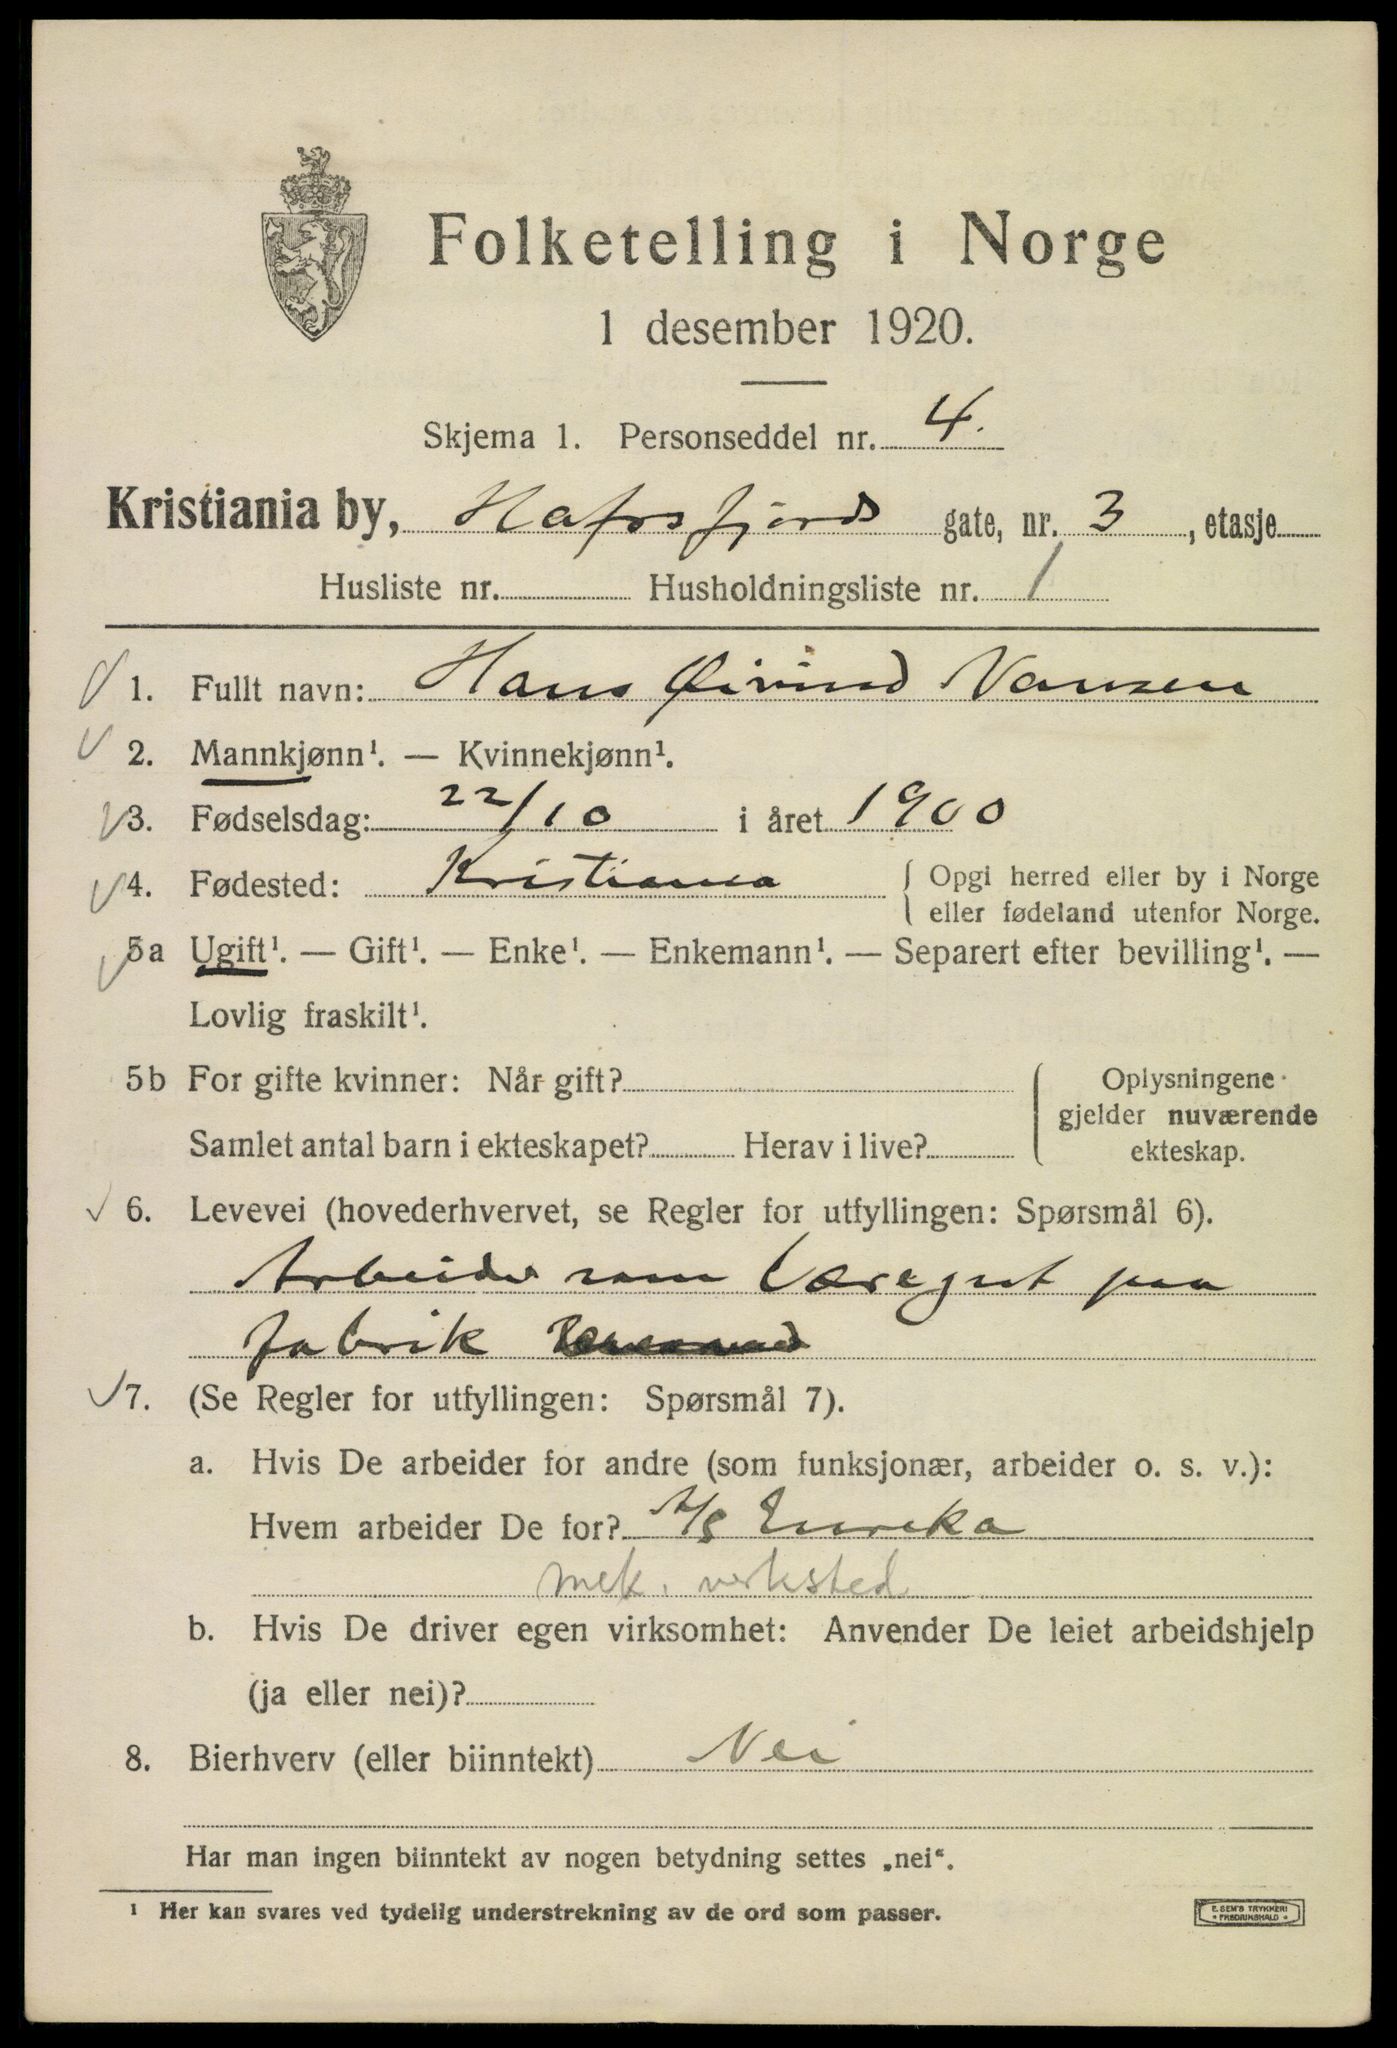 Folketelling i Norge
1 desember 1920.
Skjema 1. Personseddel nr. 4.
Kristiania by, Hafrsfjords gate, nr. 3, etasje
Husliste nr. Husholdningsliste nr. 1
1. Fullt navn: Hans Øivind Nansen
2. Mannkjønn¹. — Kvinnekjønn¹.
3. Fødselsdag: 22/10 i året 1900
4. Fødested: Kristiania { Opgi herred eller by i Norge
eller fødeland utenfor Norge.
5a Ugift¹. — Gift¹. — Enke¹. — Enkemann¹. — Separert efter bevilling¹. —
Lovlig fraskilt¹.
5b For gifte kvinner: Når gift? { Oplysningene
gjelder nuværende
Samlet antal barn i ekteskapet? Herav i live? ekteskap.
6. Levevei (hovederhvervet, se Regler for utfyllingen: Spørsmål 6).
Arbeider som Læregut paa
fabrik
7. (Se Regler for utfyllingen: Spørsmål 7).
a. Hvis De arbeider for andre (som funksjonær, arbeider o. s. v.):
Hvem arbeider De for? A/S Eureka
mek. verksted
b. Hvis De driver egen virksomhet: Anvender De leiet arbeidshjelp
(ja eller nei)?
8. Bierhverv (eller biinntekt) Nei
Har man ingen biinntekt av nogen betydning settes „nei“.
¹ Her kan svares ved tydelig understrekning av de ord som passer.
E. SEM'S TRYKKERI
• FREDRIKSHALD •